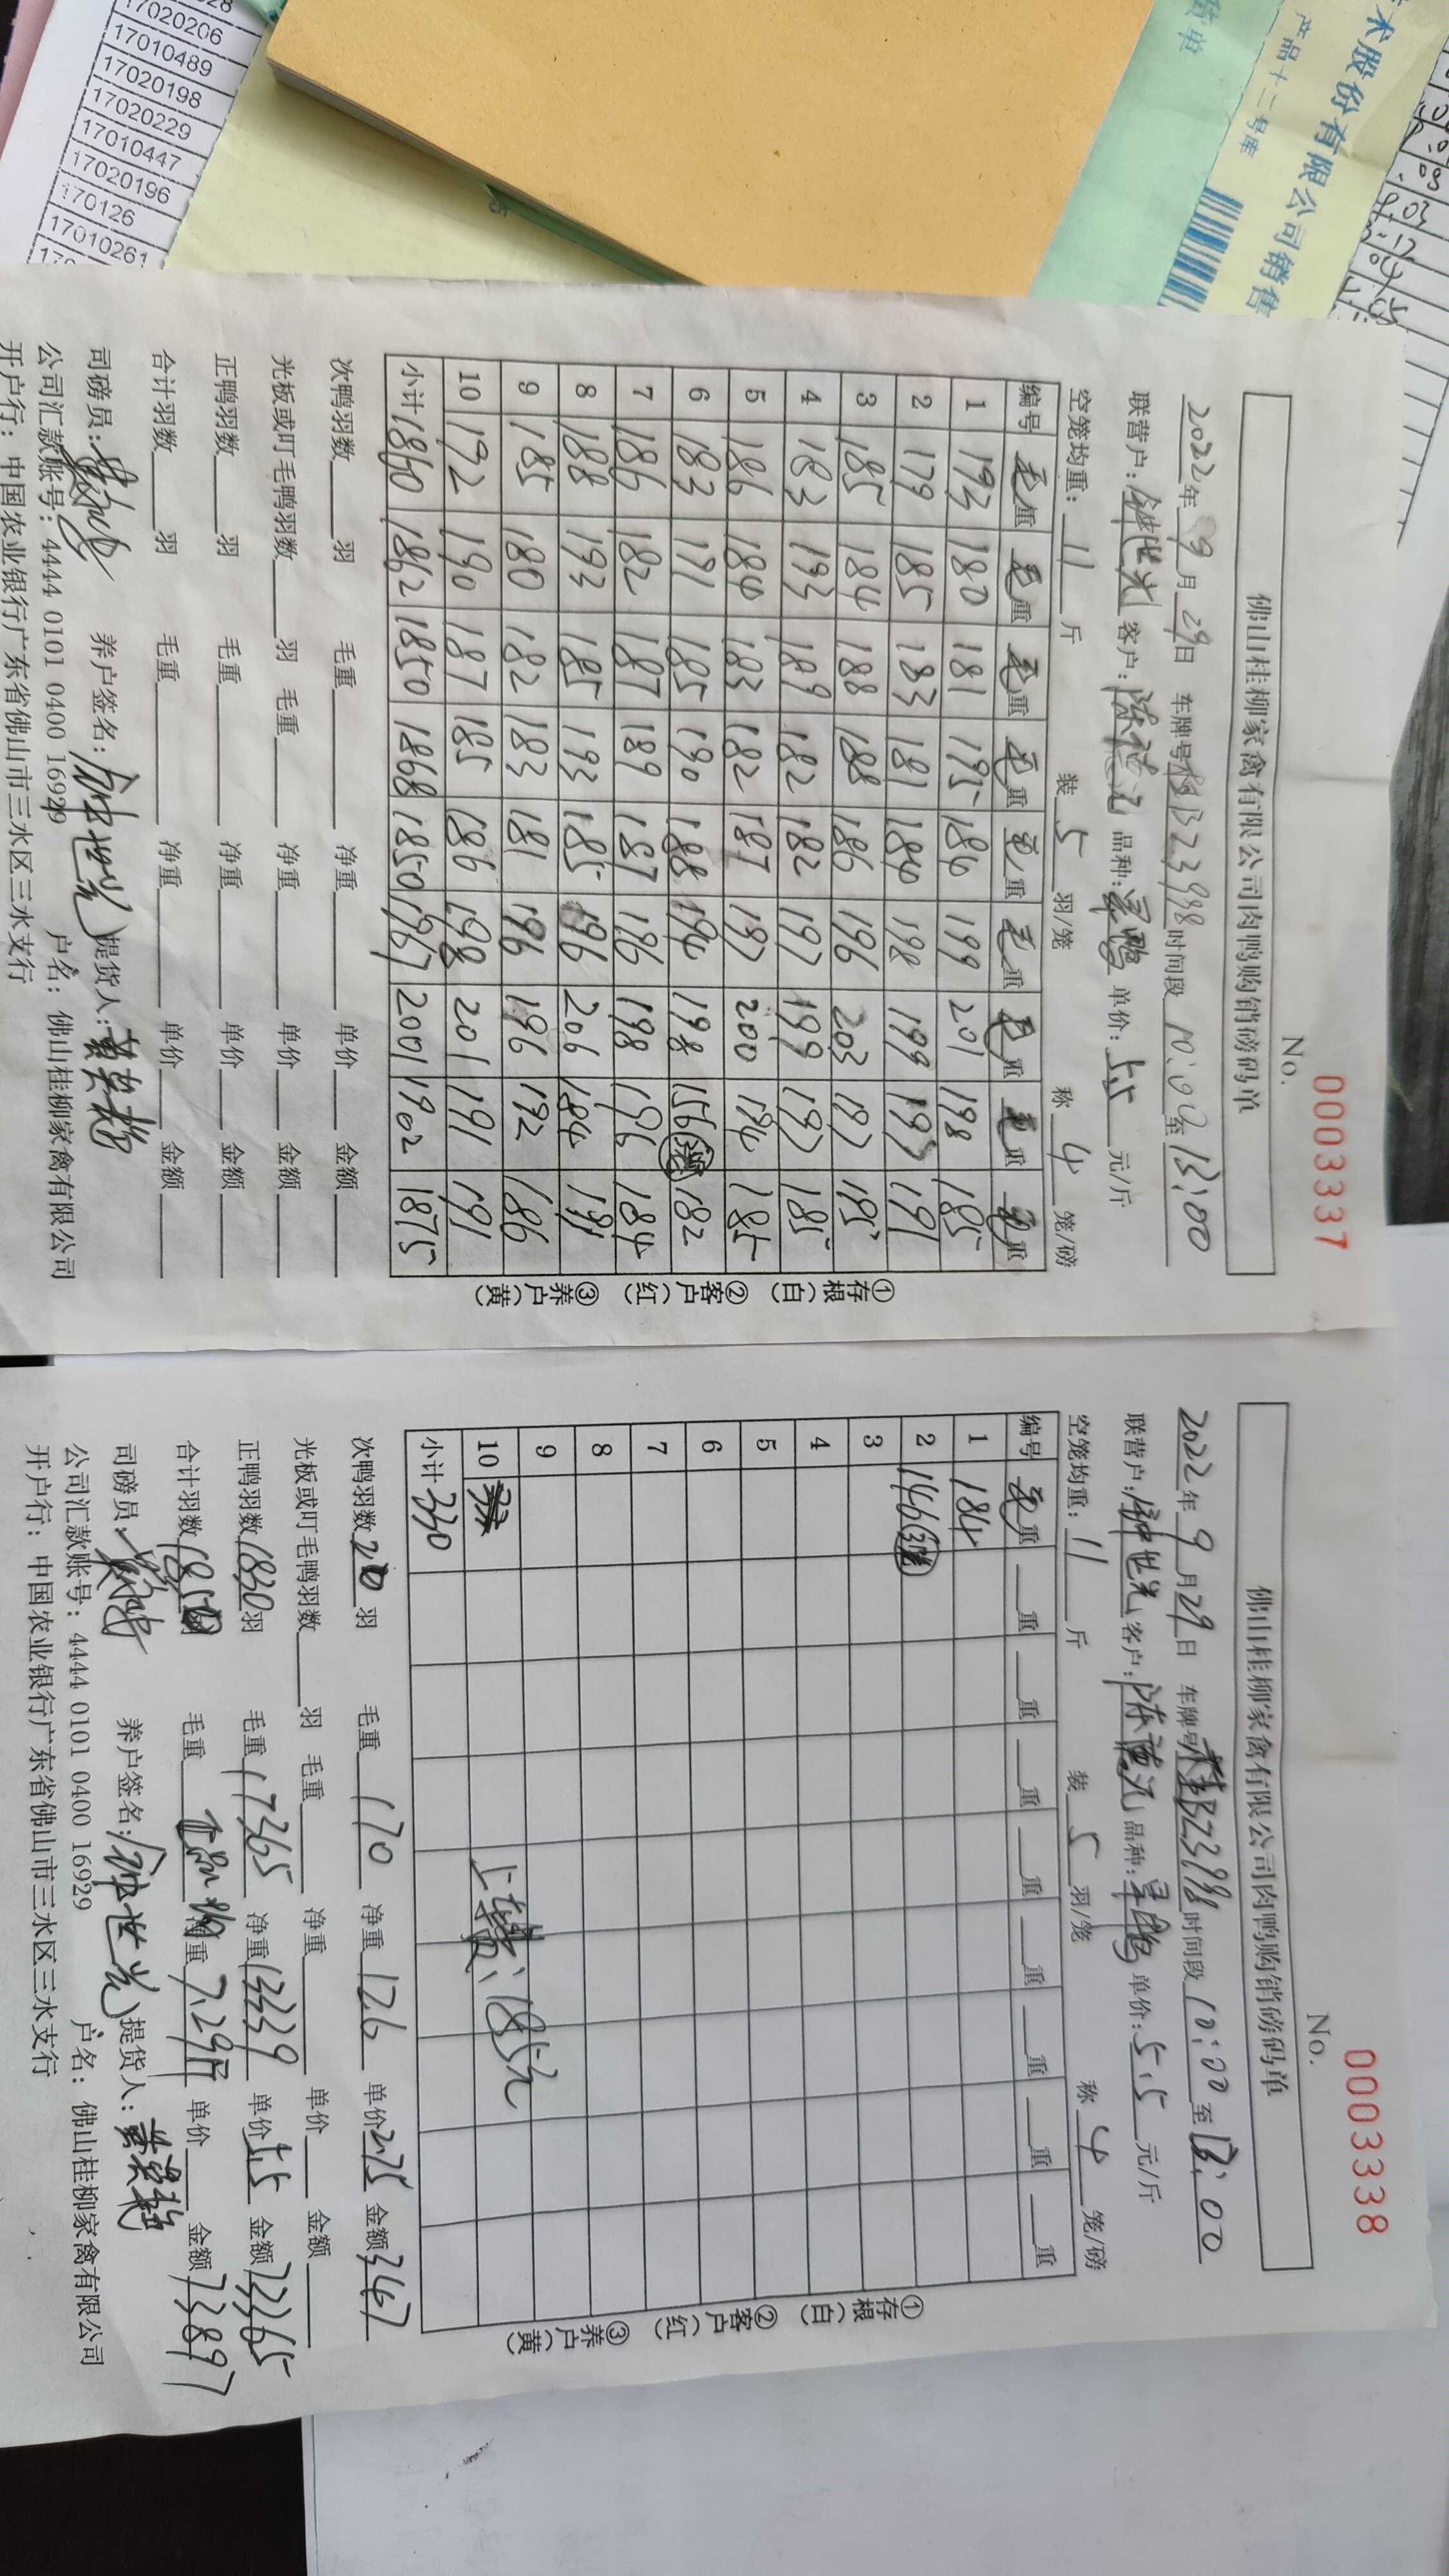 17020206
17010489
17020198
17020229
17010447
17020196
170126
17010261
术股份有限公司销售
产品十二号库
No. 0003337
佛山桂柳家禽有限公司肉鸭购销磅码单
2022年 9月 29日 车牌号桂B23998时间段 10:00至13:00
联营户:钟世光 客户:陈德沅 品种:旱鸭 单价:5.5 元/斤
空笼均重: 11 斤 装 5 羽/笼 称 4 笼/磅
编号 毛重 毛重 毛重 毛重 毛重 毛重 毛重 毛重 毛重
1 193 180 181 195 184 199 201 198 185
2 179 185 183 181 184 198 199 197 191
3 185 184 188 188 186 196 203 197 195
4 183 193 189 182 182 197 199 197 185
5 186 184 183 182 187 197 200 194 185
6 183 171 185 190 188 194 198 156 182
7 186 182 187 189 187 196 198 196 184
8 188 193 185 193 185 196 206 184 191
9 185 180 182 183 181 196 196 192 186
10 192 190 187 185 186 198 201 191 191
小计 1860 1842 1850 1868 1850 1967 2001 1902 1875
次鸭羽数 羽 毛重 净重 单价 金额
光板或叮毛鸭羽数 羽 毛重 净重 单价 金额
正鸭羽数 羽 毛重 净重 单价 金额
合计羽数 羽 毛重 净重 单价 金额
司磅员: 养户签名:钟世光 提货人:
公司汇款账号: 4444 0101 0400 16929 户名: 佛山桂柳家禽有限公司
开户行: 中国农业银行广东省佛山市三水区三水支行
①存根(白) ②客户(红) ③养户(黄)
No. 0003338
佛山桂柳家禽有限公司肉鸭购销磅码单
2022年 9月29日 车牌号桂B23998时间段 10:00 至13:00
联营户:钟世光 客户:陈德沅 品种:旱鸭 单价:5.5 元/斤
空笼均重: 11 斤 装 5 羽/笼 称 4 笼/磅
编号 毛重 重 重 重 重 重 重 重 重
1 184
2 146
3
4
5
6
7
8
9
10 上车费:185元
小计 330
次鸭羽数 20 羽 毛重 170 净重 126 单价2.75 金额 347
光板或叮毛鸭羽数 羽 毛重 净重 单价 金额
正鸭羽数1830羽 毛重 17365 净重13339 单价5.5 金额73365
合计羽数1850 毛重 净重 7.29斤 单价 金额73897
司磅员: 养户签名:钟世光 提货人:
公司汇款账号: 4444 0101 0400 16929 户名: 佛山桂柳家禽有限公司
开户行: 中国农业银行广东省佛山市三水区三水支行
①存根(白) ②客户(红) ③养户(黄)